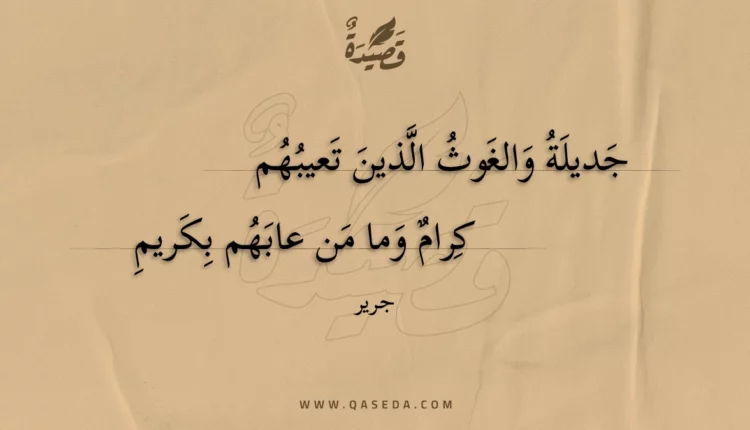 قَصِيدَةٌ
جَديلَةُ وَالغَوثُ الَّذينَ تَعيبُهُم
كِرامٌ وَما مَن عابَهُم بِكَريمِ
جرير
WWW.QASEDA.COM